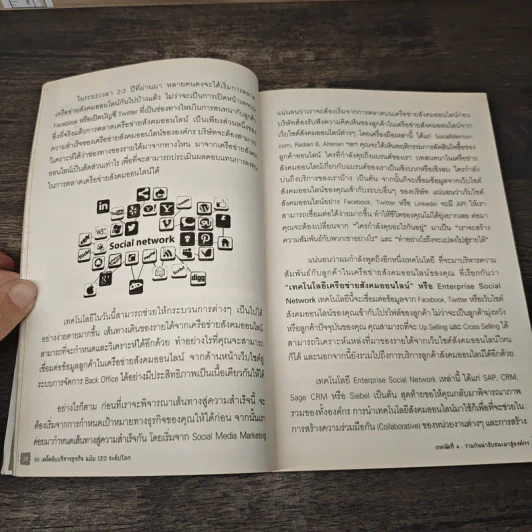 ในระยะเวลา 2-3 ปีที่ผ่านมา หลายคนคงจะได้เริ่มการตลาด
เครือข่ายสังคมออนไลน์กันไปบ้างแล้ว ไม่ว่าจะเป็นการเปิดหน้าเพจใน
Facebook หรือเปิดบัญชี Twitter ที่เป็นช่องทางใหม่ในการสนทนากับลูกค้า
ซึ่งที่จริงแล้วการตลาดเครือข่ายสังคมออนไลน์ เป็นเพียงส่วนหนึ่งของ
ความสำเร็จของเครือข่ายสังคมออนไลน์ขององค์กร บริษัทจะต้องสามารถ
วิเคราะห์ได้ว่าช่องทางของรายได้มาจากทางไหน มาจากเครือข่ายสังคม
ออนไลน์เป็นสัดส่วนเท่าไร เพื่อที่จะสามารถประเมินผลตอบแทนการลงทุน
ในการตลาดเครือข่ายสังคมออนไลน์ได้
Social network
digg
เทคโนโลยีในวันนี้สามารถช่วยให้กระบวนการต่างๆ เป็นไปได้
อย่างง่ายดายมากขึ้น เส้นทางเดินของรายได้จากเครือข่ายสังคมออนไลน์
สามารถที่จะกำหนดและวิเคราะห์ได้ด้วย ทำอย่างไรที่คุณจะสามารถ
เชื่อมต่อข้อมูลลูกค้าในเครือข่ายสังคมออนไลน์ จากด้านหน้าเว็บไซต์สู่
ระบบการจัดการ Back Office ได้อย่างมีประสิทธิภาพเป็นเนื้อเดียวกันให้ได้
อย่างไรก็ตาม ก่อนที่เราจะพิจารณาเส้นทางสู่ความสำเร็จนี้ จะ
ต้องเริ่มจากการกำหนดเป้าหมายทางธุรกิจของคุณให้ได้ก่อน จากนั้นเรา
ค่อยมากำหนดเส้นทางสู่ความสำเร็จกัน โดยเริ่มจาก Social Media Marketing
50 เคล็ดลับบริหารธุรกิจ ฉบับ CEO ระดับโลก
แน่นอนว่าเราจะต้องเริ่มจากการตลาดบนเครือข่ายสังคมออนไลน์ก่อน
บริษัทต้องรับฟังความคิดเห็นของลูกค้าในเครือข่ายสังคมออนไลน์จาก
เว็บไซต์สังคมออนไลน์ต่างๆ โดยเครื่องมือเหล่านี้ ได้แก่ SocialMention.
com, Radian 6, Alterian ฯลฯ คุณจะได้เห็นพฤติกรรมการตัดสินใจซื้อของ
ลูกค้าออนไลน์ ใครที่กำลังคุยถึงแบรนด์ของเรา บทสนทนาในเครือข่าย
สังคมออนไลน์เกี่ยวกับแบรนด์ของเราเป็นเชิงบวกหรือเชิงลบ ใครกำลัง
บ่นถึงบริการของเราบ้าง เป็นต้น จากนั้นก็จะเชื่อมข้อมูลจากเว็บไซต์
สังคมออนไลน์ของคุณเข้ากับระบบอื่นๆ ของบริษัท แน่นอนว่าเว็บไซต์
สังคมออนไลน์อย่าง Facebook, Twitter หรือ Linkedin จะมี API ให้เรา
สามารถเชื่อมต่อได้ง่ายมากขึ้น ทำให้ชีวิตของคุณไม่ได้ยุ่งยากเลย ต่อมา
คุณจะต้องเปลี่ยนจาก "ใครกำลังคุยอะไรกันอยู่" มาเป็น "เราจะสร้าง
ความสัมพันธ์กับพวกเขาอย่างไร" และ "ทำอย่างไรถึงจะแปลงไปสู่รายได้"
แน่นอนว่าผมกำลังพูดถึงอีกหนึ่งเทคโนโลยี ที่จะมาบริหารความ
สัมพันธ์กับลูกค้าในเครือข่ายสังคมออนไลน์ของคุณ ที่เรียกกันว่า
"เทคโนโลยีเครือข่ายสังคมออนไลน์" หรือ Enterprise Social
Network เทคโนโลยีนี้จะเชื่อมต่อข้อมูลจาก Facebook, Twitter หรือเว็บไซต์
สังคมออนไลน์ของคุณเข้ากับโปรไฟล์ของลูกค้า ไม่ว่าจะเป็นลูกค้ามุ่งหวัง
หรือลูกค้าปัจจุบันของคุณ คุณสามารถที่จะ Up Selling และ Cross Selling ได้
สามารถวิเคราะห์แหล่งที่มาของรายได้จากเว็บไซต์สังคมออนไลน์ไหน
ก็ได้ และนอกจากนี้ยังรวมไปถึงการบริการลูกค้าสังคมออนไลน์ได้อีกด้วย
เทคโนโลยี Enterprise Social Network เหล่านี้ ได้แก่ SAP, CRM,
Sage CRM หรือ Siebel เป็นต้น สุดท้ายขอให้คุณกลับมาพิจารณาภาพ
รวมของทั้งองค์กร การนำเทคโนโลยีสังคมออนไลน์มาใช้ก็เพื่อที่จะช่วยใน
การสร้างความร่วมมือกัน (Collaborative) ของหน่วยงานต่างๆ และการสร้าง